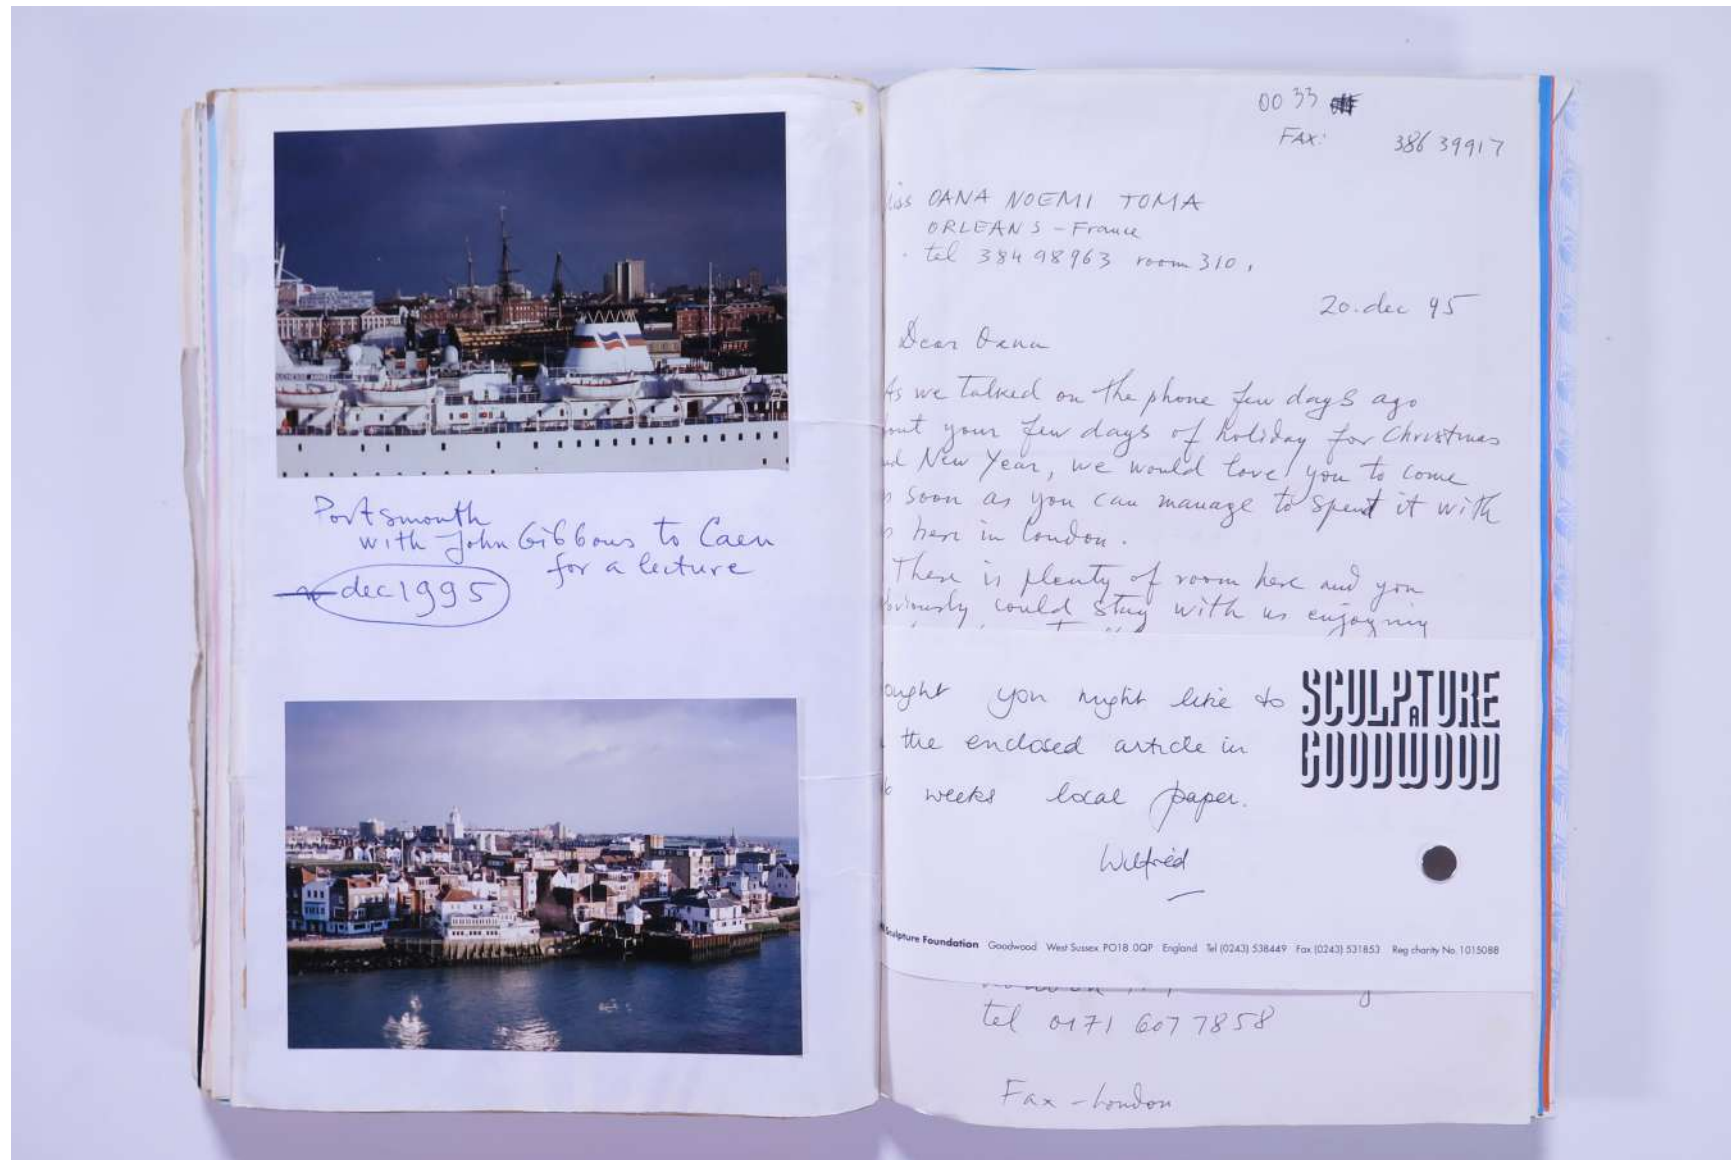 Portsmouth
with John Gibbons to Caen
for a lecture
dec 1995
00 33
FAX: 386 39917
iss OANA NOEMI TOMA
ORLEANS - France
tel 384 98963 room 310,
20. dec 95
Dear Oana
As we talked on the phone few days ago
out your few days of holiday for Christmas
nd New Year, we would love you to come
s soon as you can manage to spent it with
s here in London.
There is plenty of room here and you
bviously could stay with us enjoying
ought you might like to
the enclosed article in
weeks local paper.
Wilfred
SCULPTURE
AT
GOODWOOD
Sculpture Foundation Goodwood West Sussex PO18 0QP England Tel (0243) 538449 Fax (0243) 531853 Reg charity No. 1015088
tel 0171 607 7858
Fax - London